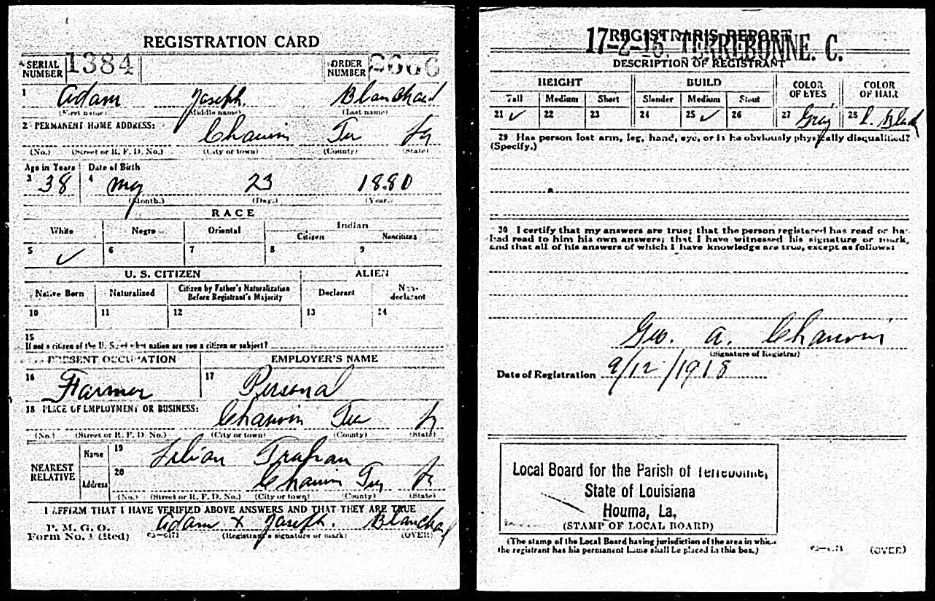 REGISTRATION CARD
SERIAL NUMBER 1384 ORDER NUMBER
1 Adam Joseph Blanchard
(First name) (Middle name) (Last name)
2 PERMANENT HOME ADDRESS:
Chauvin Ter La
(No.) (Street or R. F. D. No.) (City or town) (County) (State)
Age in Years Date of Birth
3 38 4 May 23 1880
(Month.) (Day.) (Year.)
RACE
White Negro Oriental Indian
Citizen Noncitizen
5 ✓ 6 7 8 9
U. S. CITIZEN ALIEN
Native Born Naturalized Citizen by Father's Naturalization Before Registrant's Majority Declarant Non-declarant
10 11 12 13 14
15
If not a citizen of the U. S., of what nation are you a citizen or subject?
PRESENT OCCUPATION EMPLOYER'S NAME
16 Farmer 17 Personal
18 PLACE OF EMPLOYMENT OR BUSINESS:
Chauvin Ter La
(No.) (Street or R. F. D. No.) (City or town) (County) (State)
NEAREST RELATIVE
Name 19 Lilian
Address 20 Chauvin Ter La
(No.) (Street or R. F. D. No.) (City or town) (County) (State)
I AFFIRM THAT I HAVE VERIFIED ABOVE ANSWERS AND THAT THEY ARE TRUE
P. M. G. O.
Form No. 1 (Red) Adam X Joseph Blanchard
(Registrant's signature or mark) (OVER)
REGISTRAR'S REPORT
17-2-15, TERREBONNE. C.
DESCRIPTION OF REGISTRANT
HEIGHT BUILD COLOR OF EYES COLOR OF HAIR
Tall Medium Short Slender Medium Stout
21 ✓ 22 23 24 25 ✓ 26 27 Gray 28
29 Has person lost arm, leg, hand, eye, or is he obviously physically disqualified?
(Specify.)
30 I certify that my answers are true; that the person registered has read or has
had read to him his own answers; that I have witnessed his signature or mark,
and that all of his answers of which I have knowledge are true, except as follows:
Geo. A. Chauvin
(Signature of Registrar)
Date of Registration 9/12/1918
Local Board for the Parish of Terrebonne,
State of Louisiana
Houma, La,
(STAMP OF LOCAL BOARD)
(The stamp of the Local Board having jurisdiction of the area in which
the registrant has his permanent home shall be placed in this box.)
(OVER)